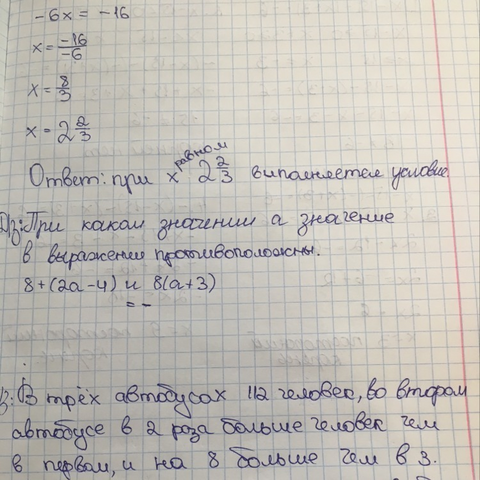 -6x = -16
x = -16/-6
x = 8/3
x = 2 2/3
Ответ: при x равном 2 2/3 выполняется условие
ДЗ: При каком значении a значение
в выражении противоположны.
8+(2a-4) и 8(a+3)
= -
В трёх автобусах 112 человек, во втором
автобусе в 2 раза больше человек чем
в первом, и на 8 больше чем в 3.